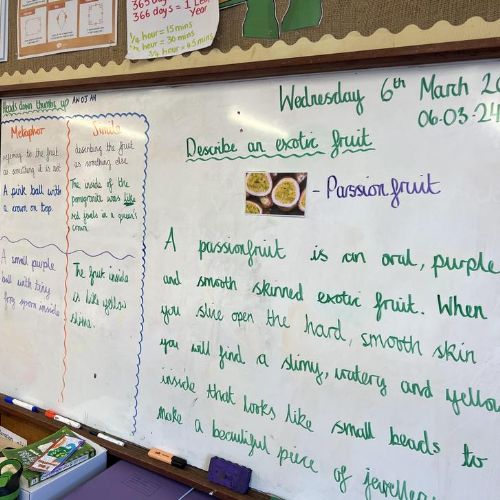 365 days = 1
366 days = 1 Leap Year
1/4 hour = 15 mins
hour = 30 mins
3/4 hour = 45 mins
Heads down thumbs up AW OJ AH
Wednesday 6th March 20
06.03.24
Describe an exotic fruit
- Parssionfruit
Metaphor
referring to the fruit
as something it is not
A pink ball with
a crown on top.
A small purple
ball with tiny
frog spawn inside
Simile
describing the fruit
as something else
The inside of the
pomegranate was like
red jewels in a queen's
crown.
The fruit inside
is like yellow
slime.
A passionfruit is an oval, purple
and smooth skinned exotic fruit. When
you slice open the hard, smooth skin
you will find a slimy, watery and yellow
inside that looks like small beads to
make a beautiful piece of jewellery